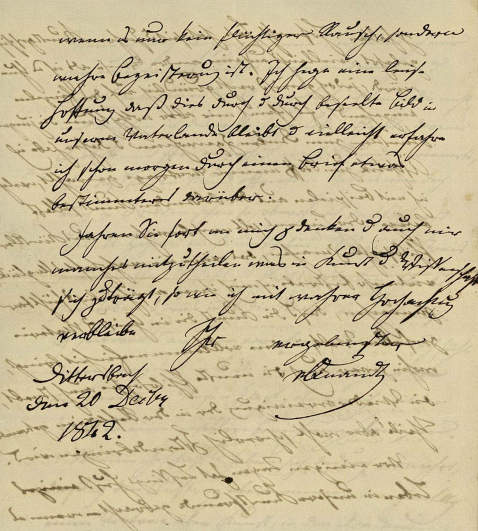 wenn es nur kein flüchtiger Rausch, sondern
wahre Begeisterung ist. Ich hege eine leise
Hoffnung daß dies durch & durch beseelte Bild in
unserem Vaterlande bleibt & vielleicht erfahre
ich schon morgen durch einen Brief etwas
bestimmteres darüber.
Fahren Sie fort an mich z denken & auch mir
manches mitzutheilen was in Kunst & Wissenschaft
sich zuträgt, so wie ich mit wahrer Hochachtung
verbleibe Ihr ergebenster
vQuandt
Dittersbach
den 20 Decbr
1842.